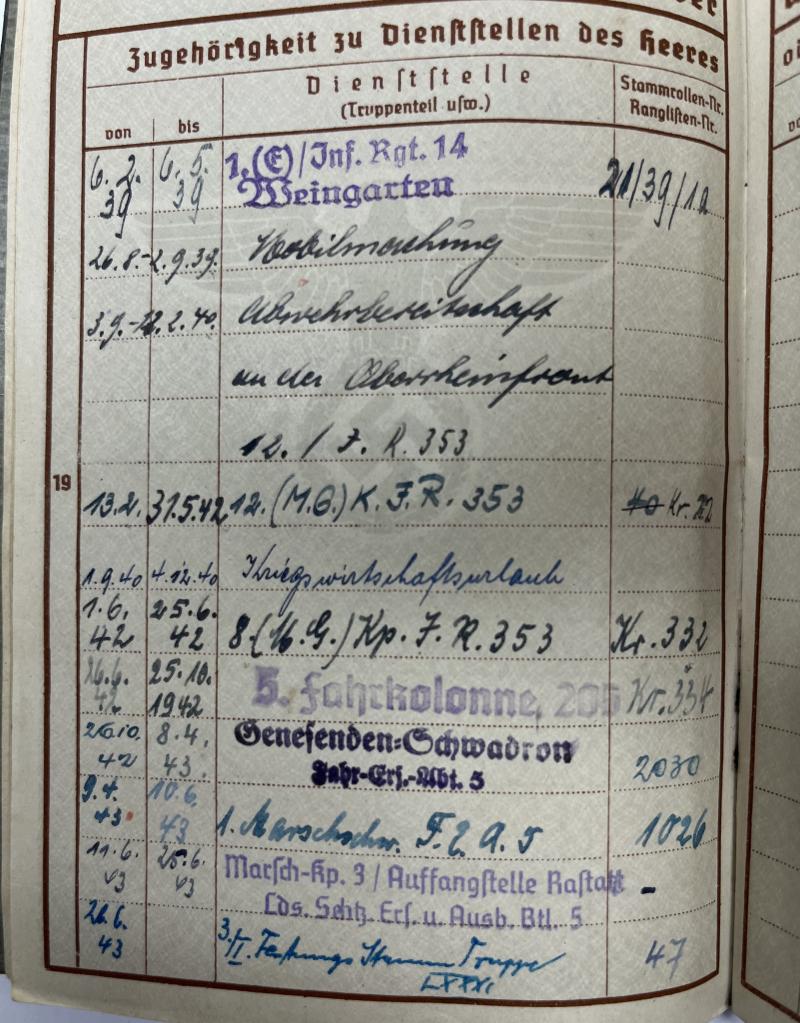 Zugehörigkeit zu Dienststellen des Heeres
von bis Dienststelle (Truppenteil usw.) Stammrollen-Nr. Ranglisten-Nr.
6.2. 39 6.5. 39 1.(E)/Inf. Rgt. 14 21/39/1a
Weingarten
26.8.-2.9.39. Mobilmachung
3.9.-12.2.40. Abwehrbereitschaft
an der Oberrheinfront
12. / J. R. 353
19
13.2. 31.5.42 12. (M.G.) K. J. R. 353 Kr.
1.9.40 4.12.40 Kriegswirtschaftsurlaub
1.6. 42 25.6. 42 8 (M.G.) Kp. J. R. 353 Kr. 332
26.6. 42 25.10. 1942 5. Fahrkolonne, 205 Kr. 334
26.10. 42 8.4. 43. Genesenden-Schwadron 2030
Fahr-Ers.-Abt. 5
9.4. 43 10.6. 43 1. Marschschw. F. E. A. 5 1026
11.6. 43 25.6. 43 Marsch-Kp. 3 / Auffangstelle Rastatt -
Lds. Schtz. Ers. u. Ausb. Btl. 5
26.6. 43 3./I. Festungs Stamm Truppe 47
LXXXI